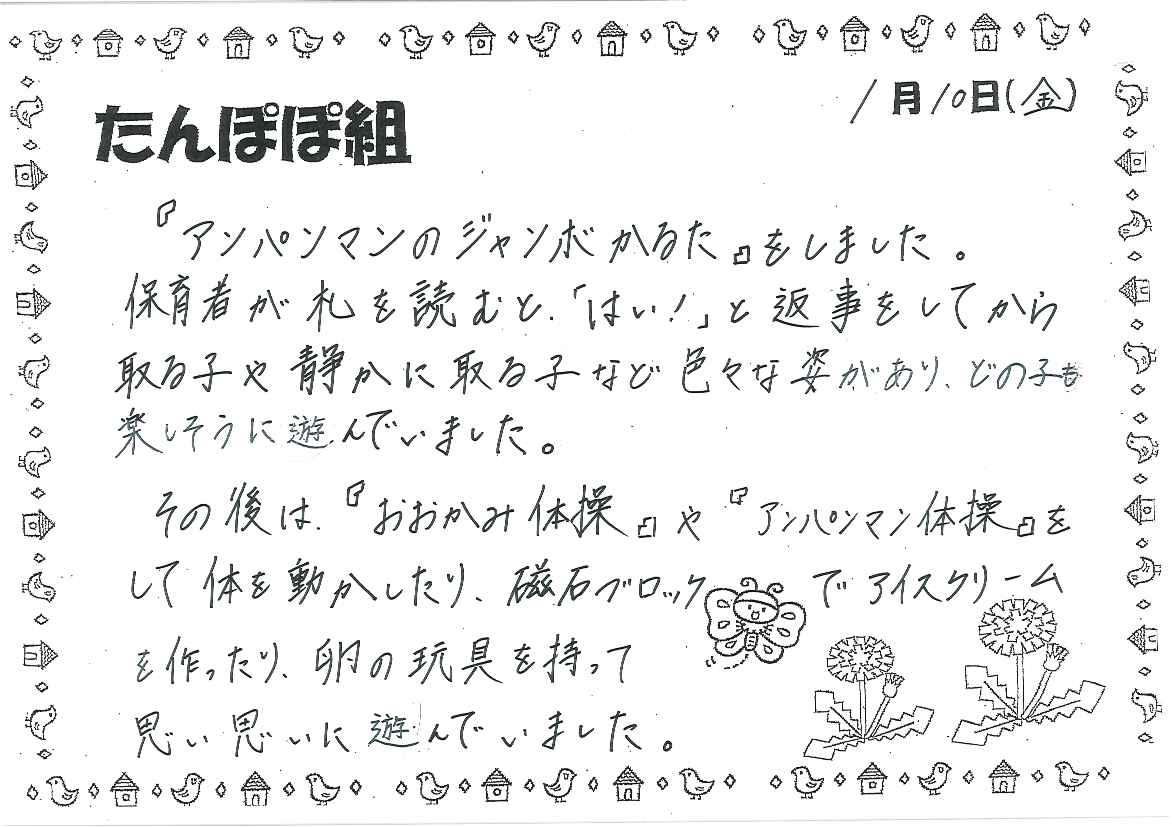 1月10日(金)
たんぽぽ組
『アンパンマンのジャンボかるた』をしました。
保育者が札を読むと、「はい!」と返事をしてから
取る子や静かに取る子など色々な姿があり、どの子も
楽しそうに遊んでいました。
その後は、『おおかみ体操』や『アンパンマン体操』を
して体を動かしたり、磁石ブロックでアイスクリーム
を作ったり、卵の玩具を持って
思い思いに遊んでいました。